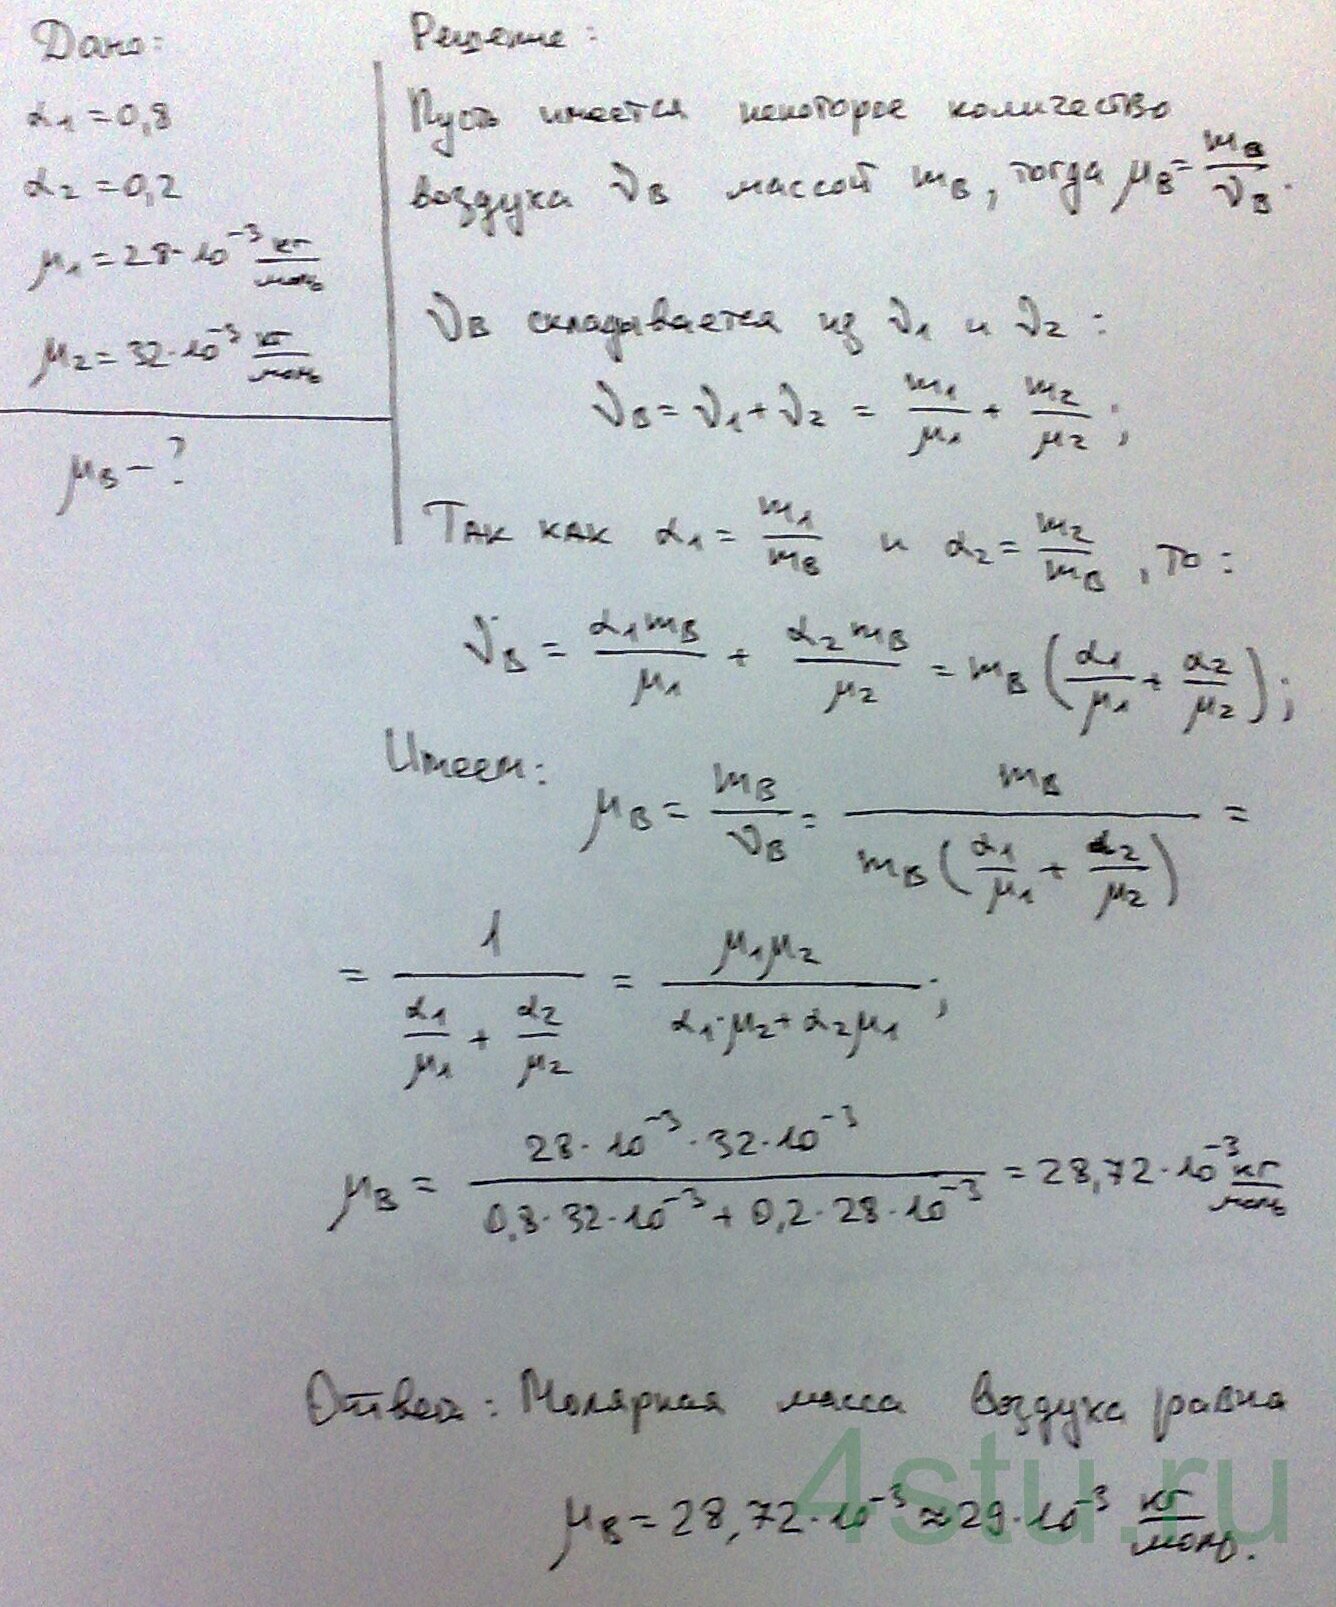 Дано:
α₁ = 0,8
α₂ = 0,2
μ₁ = 28·10⁻³ кг/моль
μ₂ = 32·10⁻³ кг/моль
μв – ?
Решение:
Пусть имеется некоторое количество
воздуха νв массой mв, тогда μв = mв/νв.
νв складывается из ν₁ и ν₂:
νв = ν₁ + ν₂ = m₁/μ₁ + m₂/μ₂;
Так как α₁ = m₁/mв и α₂ = m₂/mв, то:
νв = α₁mв/μ₁ + α₂mв/μ₂ = mв(α₁/μ₁ + α₂/μ₂);
Имеем:
μв = mв/νв = mв/(mв(α₁/μ₁ + α₂/μ₂)) =
= 1/(α₁/μ₁ + α₂/μ₂) = μ₁μ₂/(α₁·μ₂ + α₂μ₁);
μв = (28·10⁻³·32·10⁻³)/(0,8·32·10⁻³ + 0,2·28·10⁻³) = 28,72·10⁻³ кг/моль
Ответ: Молярная масса воздуха равна
μв = 28,72·10⁻³ ≈ 29·10⁻³ кг/моль.
4stu.ru